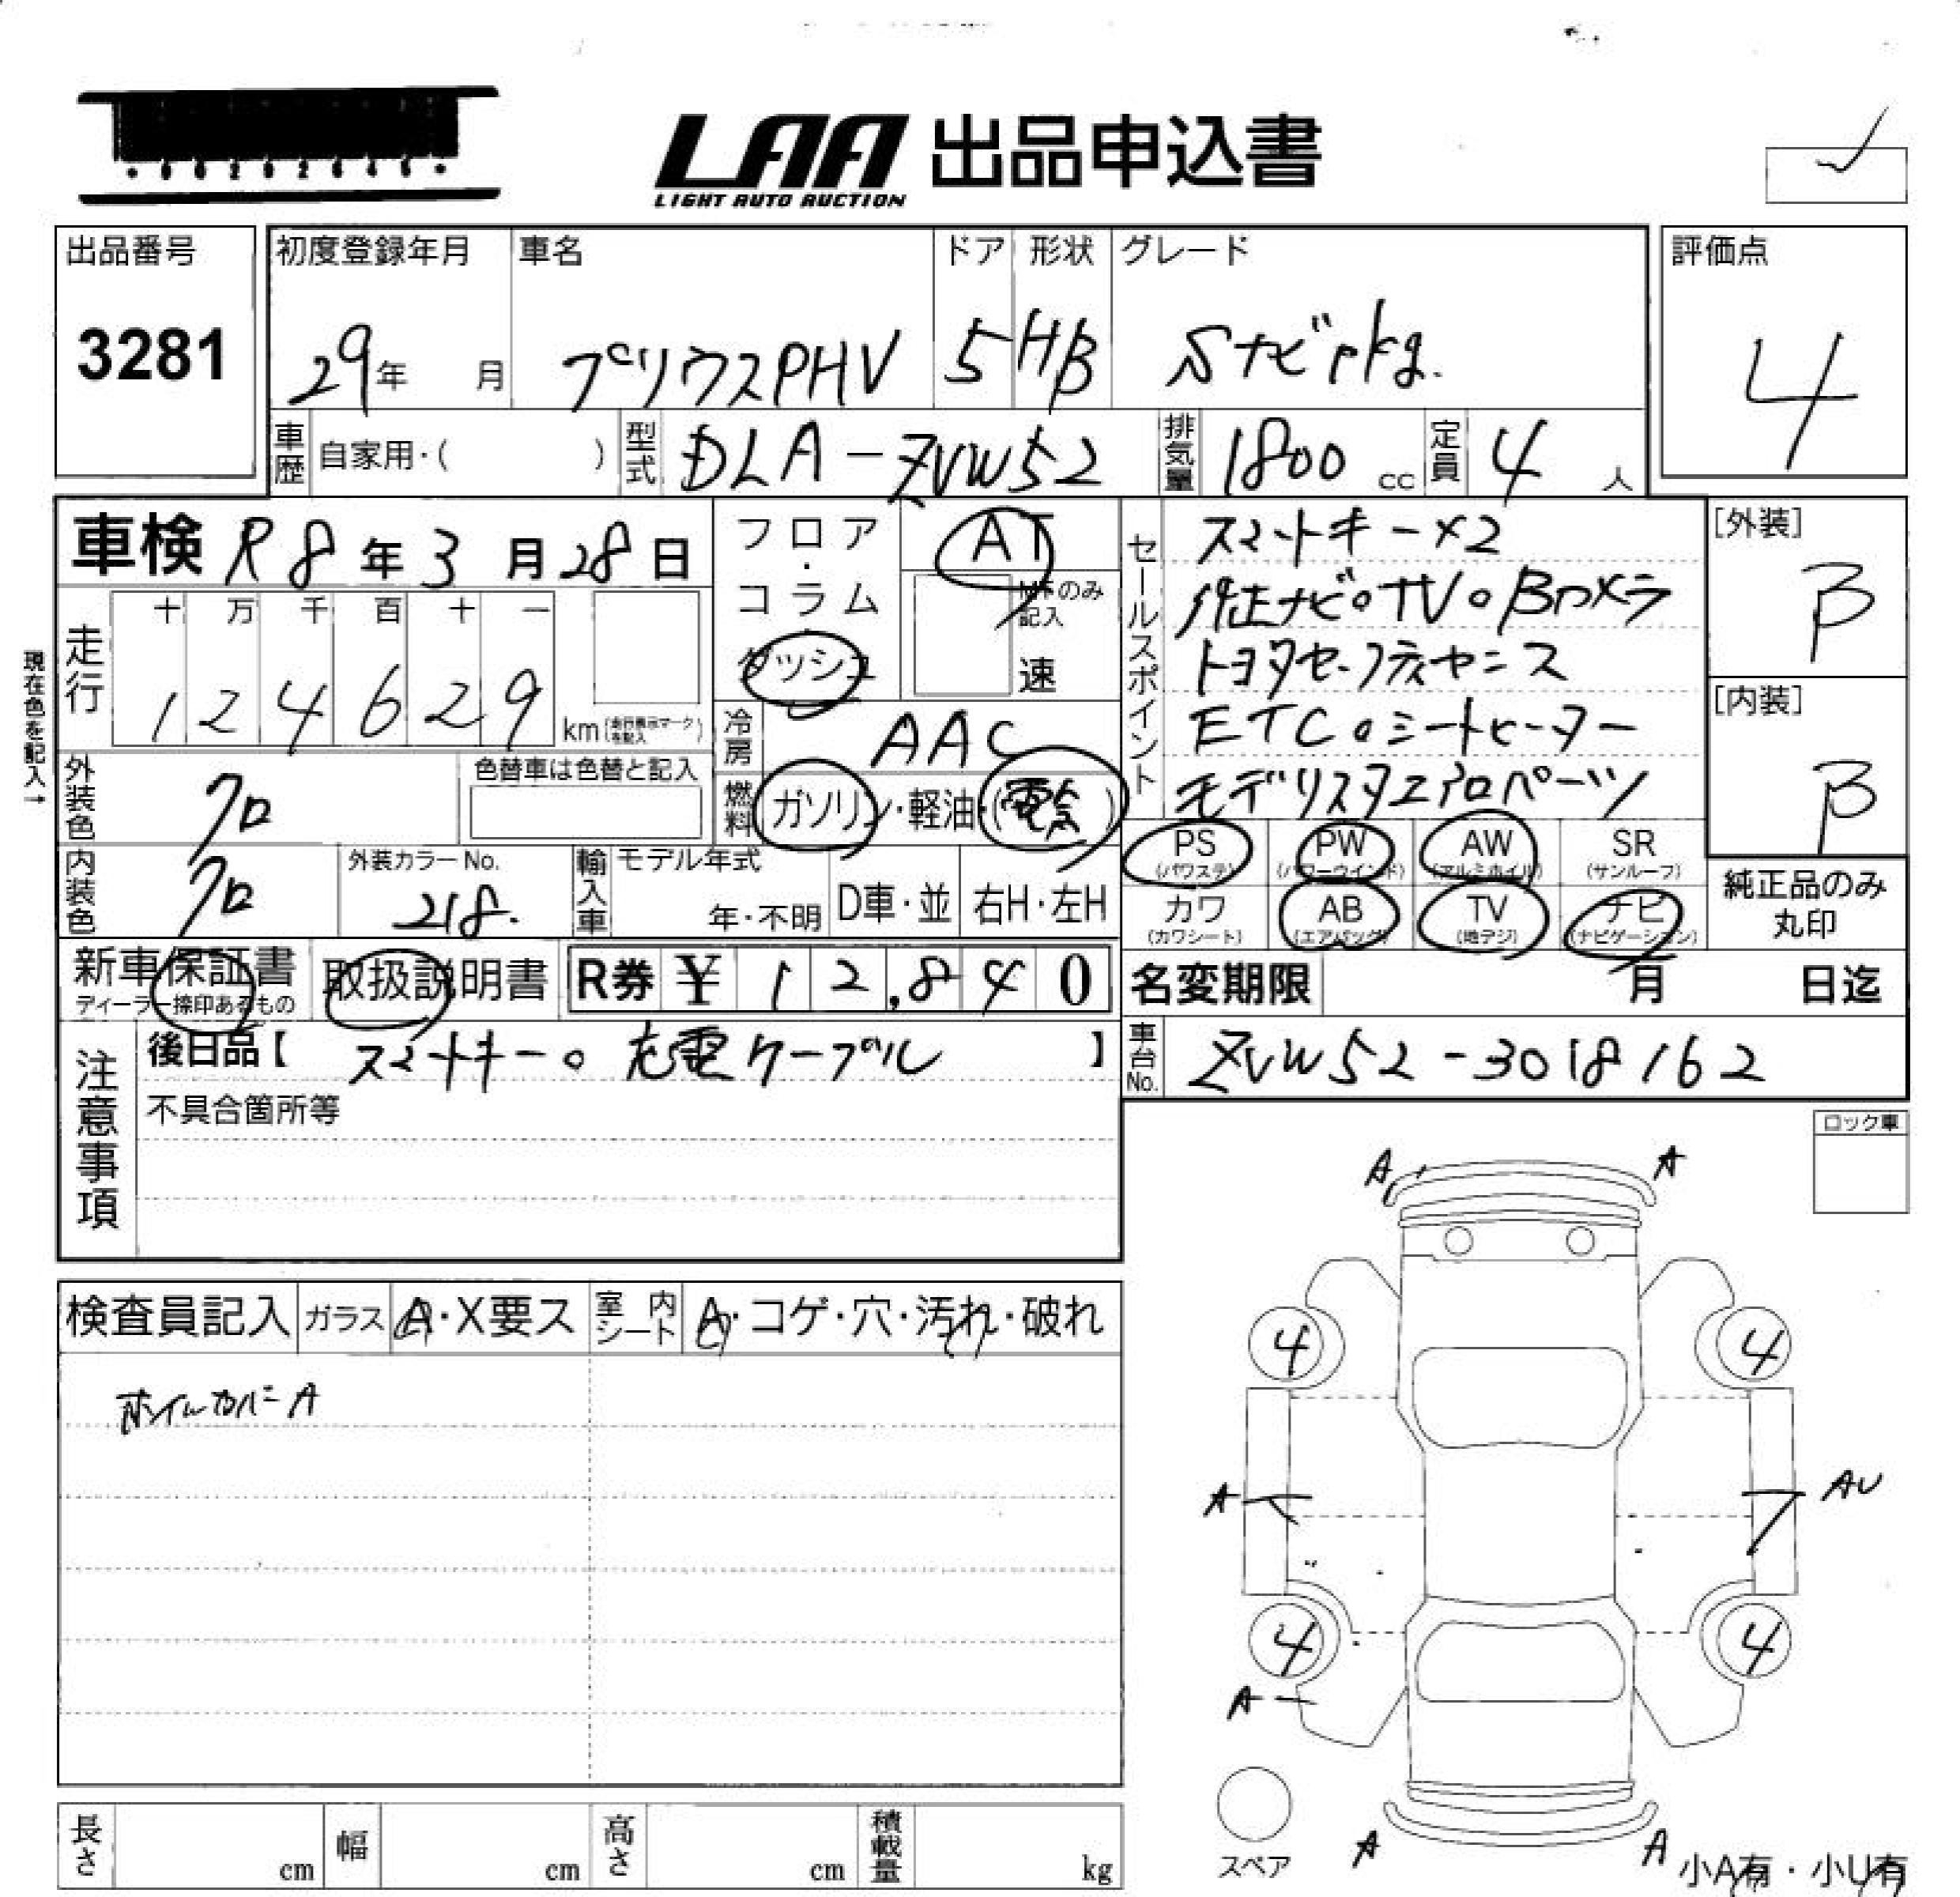 LAA 出品申込書
LIGHT AUTO AUCTION
出品番号 初度登録年月 車名 ドア 形状 グレード 評価点
3281 29年 月 プリウスPHV 5 HB Sナビpkg. 4
車歴 自家用・( ) 型式 DLA-ZVW52 排気量 1800 cc 定員 4 人
車検 R8年3月28日
フロア・コラム・ダッシュ AT
MTのみ記入
速
セールスポイント
スマートキー×2
純正ナビ。TV。Bカメラ
トヨタセーフティセンス
ETC。シートヒーター
モデリスタエアロパーツ
[外装] B
[内装] B
現在色を記入→
走行 十 万 千 百 十 一
1 2 4 6 2 9 km (走行表示マークを記入)
冷房 AAC
燃料 ガソリン・軽油・(電気)
外装色 クロ 色替車は色替と記入
内装色 クロ 外装カラーNo. 218. 輸入車 モデル年式 年・不明 D車・並 右H・左H
PS (パワステ) PW (パワーウインド) AW (アルミホイル) SR (サンルーフ)
カワ (カワシート) AB (エアバッグ) TV (地デジ) ナビ (ナビゲーション)
純正品のみ丸印
新車保証書 ディーラー捺印あるもの 取扱説明書 R券 ¥ 12,840
名変期限 月 日迄
注意事項
後日品【 スマートキー。充電ケーブル 】
不具合箇所等
車台No. ZVW52-3018162
ロック車
検査員記入 ガラス A・X要ス 室内シート A・コゲ・穴・汚れ・破れ
ホイルカバーA
A A
4 4
A AU
4 4
A
スペア
A A
小A有・小U有
長さ cm 幅 cm 高さ cm 積載量 kg